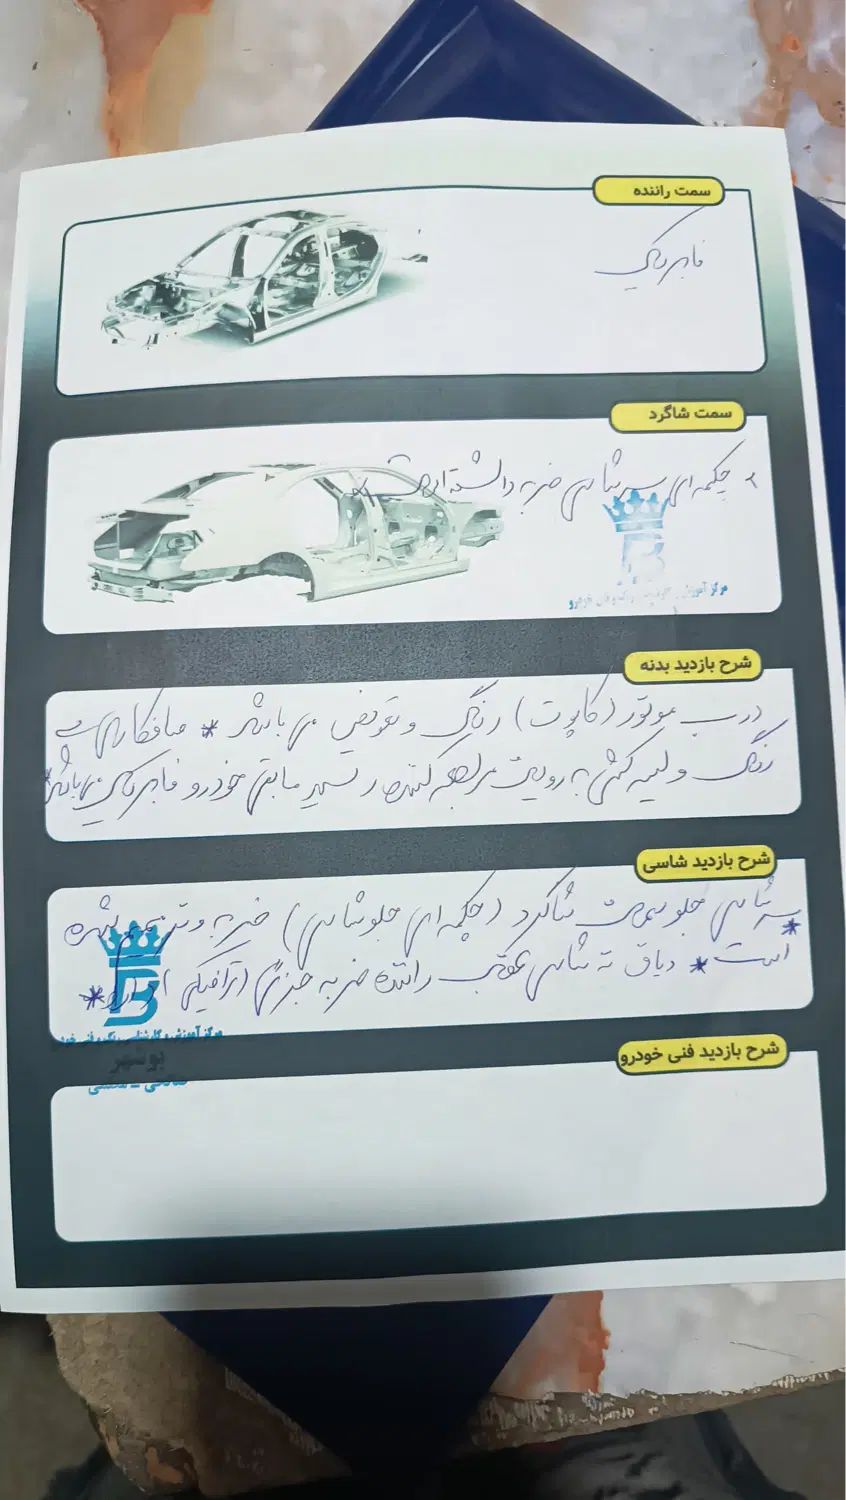 سمت راننده
فابریک
سمت شاگرد
چکمه ای سرشاسی ضربه داشته است
مرکز آموزش
شرح بازدید بدنه
درب موتور (کاپوت) رنگ و تعویض می باشد * صافکاری بی
رنگ و لیسه گیری به رویت مراجعه کننده رسید مابقی خودرو فابریک می باشد*
شرح بازدید شاسی
سرشاسی جلو سمت شاگرد (چکمه ای جلو شاسی) ضربه و ترمیم شده
است * دیاق ته شاسی عقب راننده ضربه جزئی (ترافیکی) دارد *
مرکز آموزش و کارشناسی رنگ و فنی خودرو
بوشهر
شرح بازدید فنی خودرو